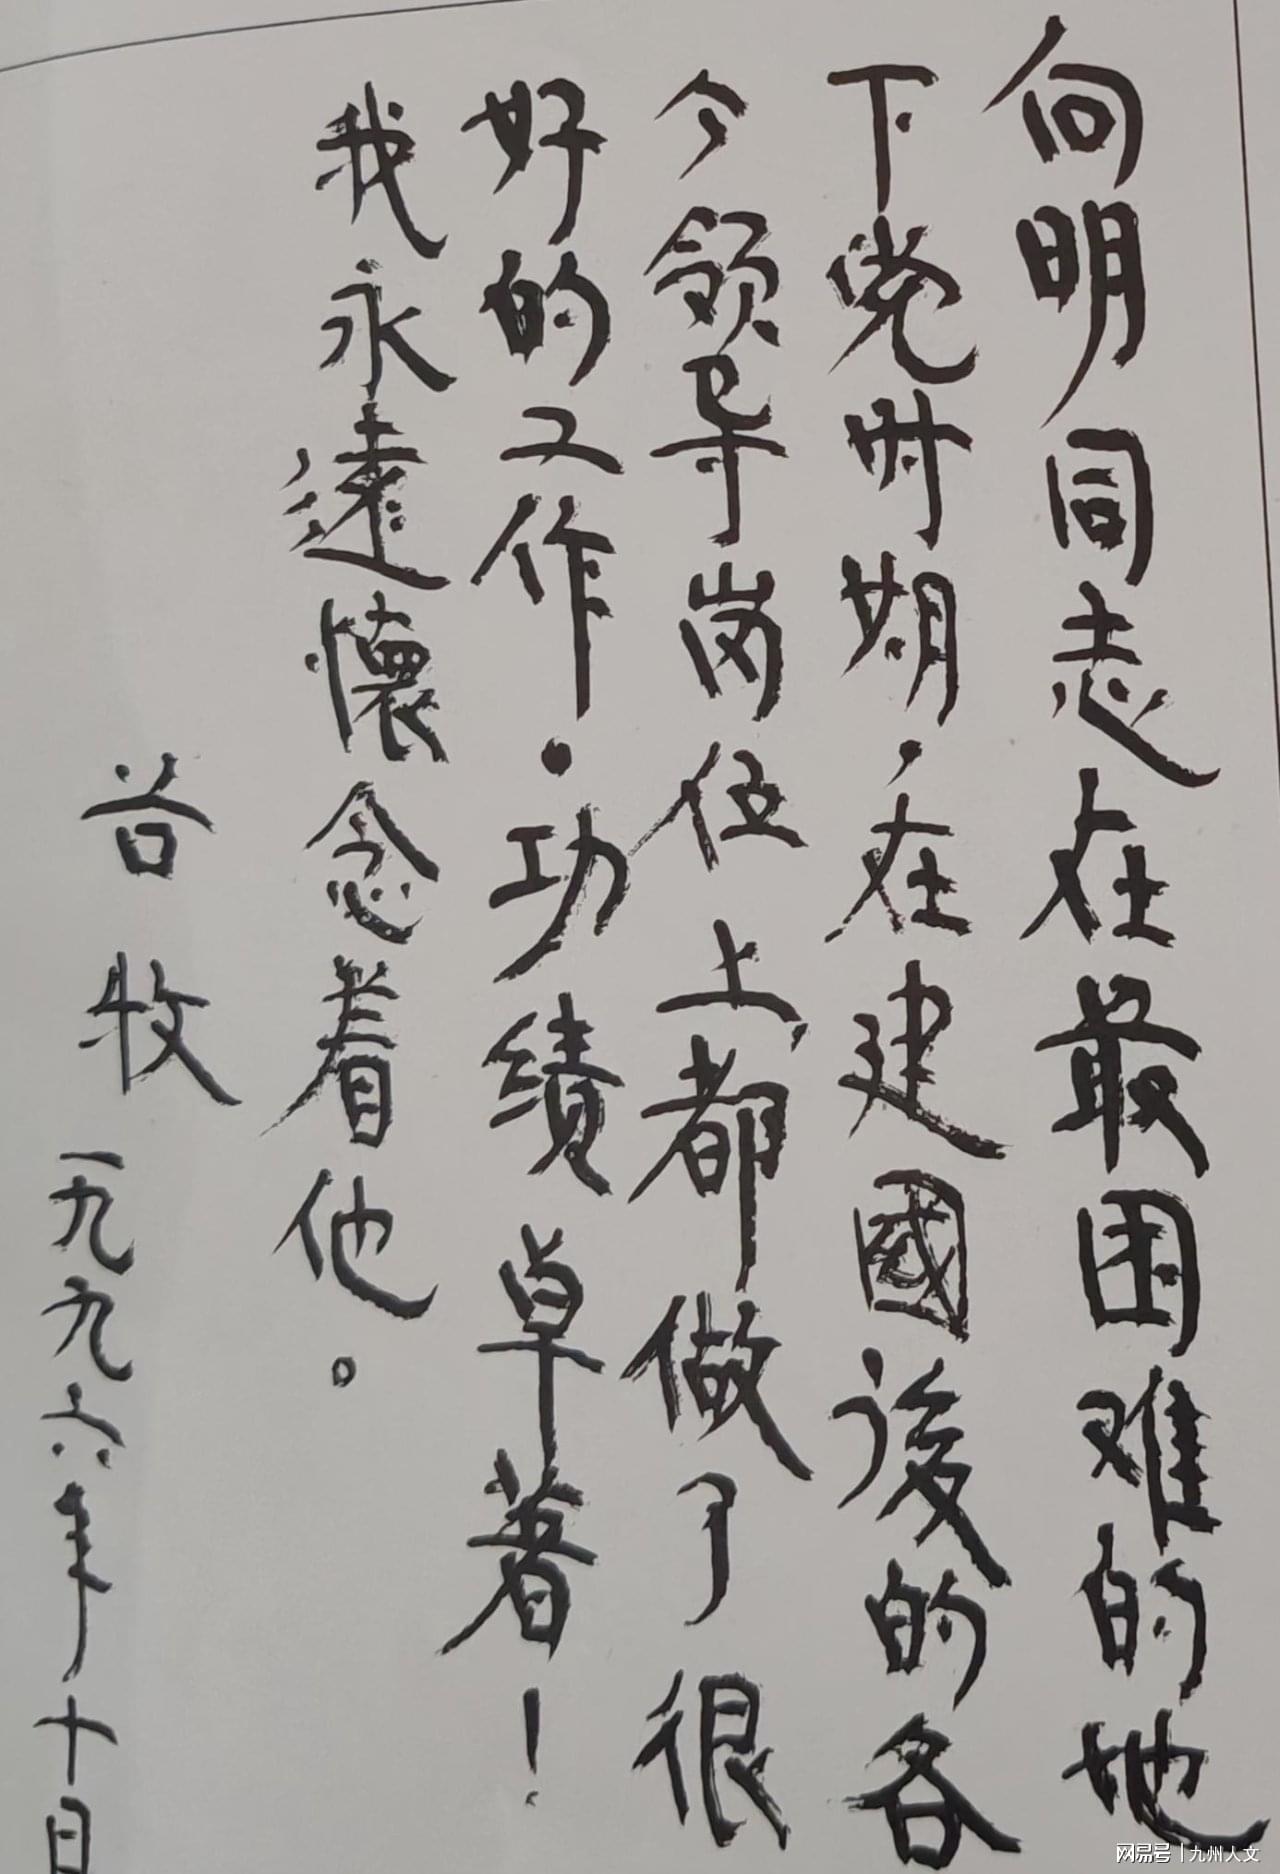 向明同志在最困难的地
下党时期，在建國後的各
个领导岗位上都做了很
好的工作．功績卓著！
我永遠懷念着他。
谷牧
一九九六年十月
网易号 | 九州人文